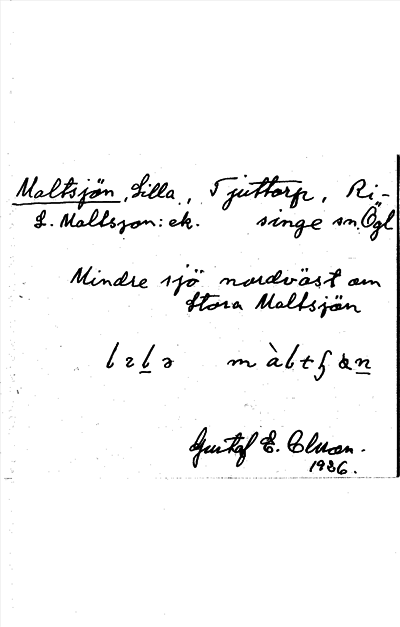 Maltsjön, Lilla, Tjuttorp, Ri-
L. Maltsjön: ek. singe sn. Ögl
Mindre sjö nordväst om
Stora Maltsjön
Gustaf E.
1936.